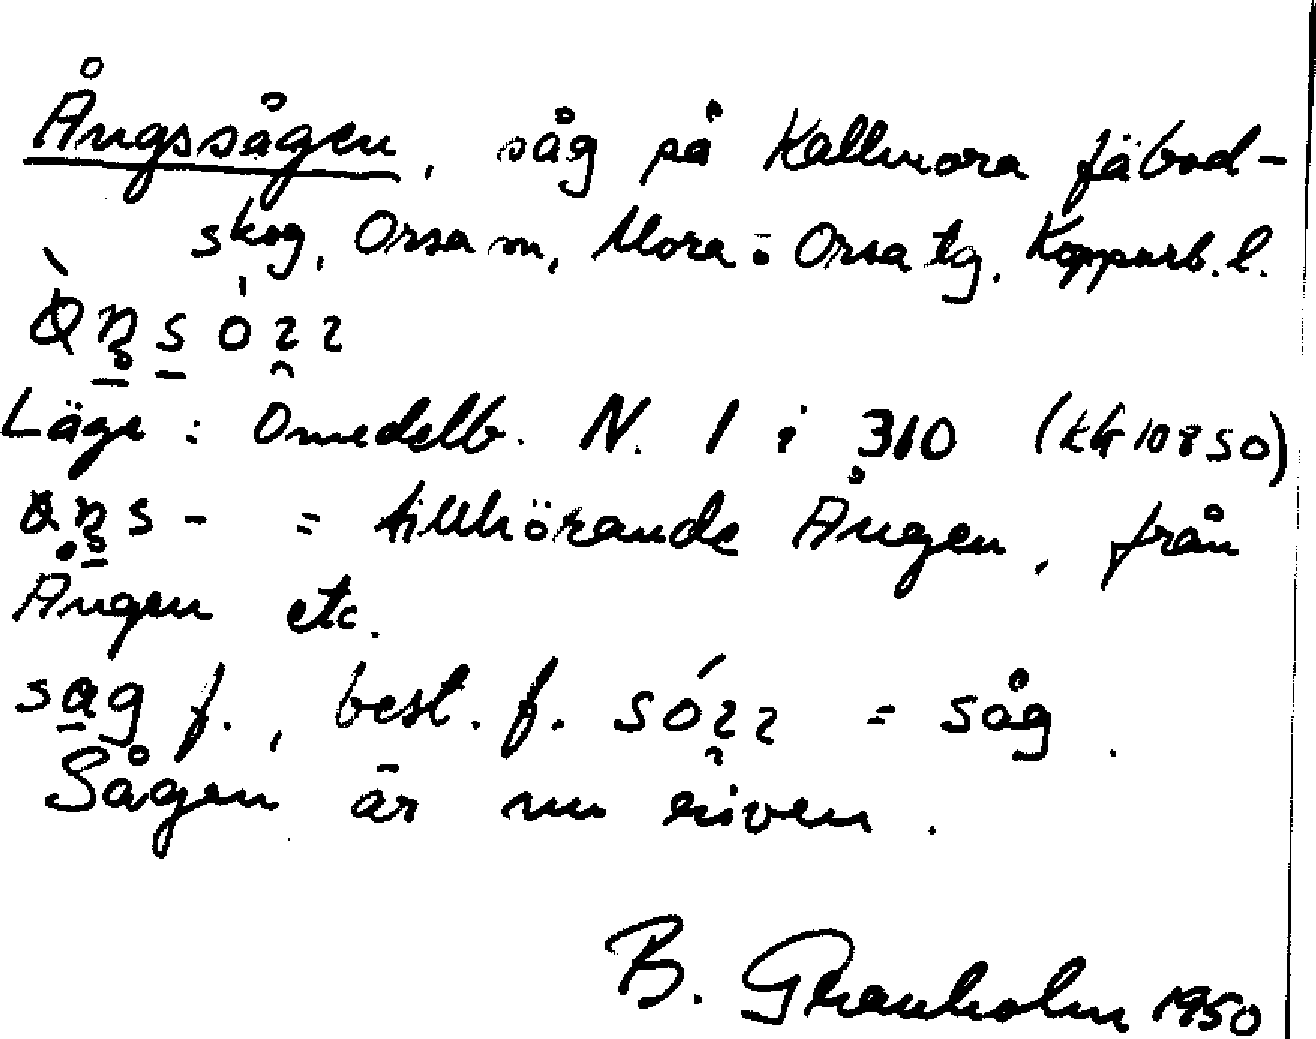 Ångssågen, såg på Kallmora fäbod-
skog, Orsa sn, Mora o Orsa tg. Kopparb. l.
Läge: Omedelb. N. 1 i 310 (kbl 10850)
= tillhörande Ången, från
Ången etc.
sag f., best. f. = såg.
Sågen är nu riven.
B. Granholm 1950